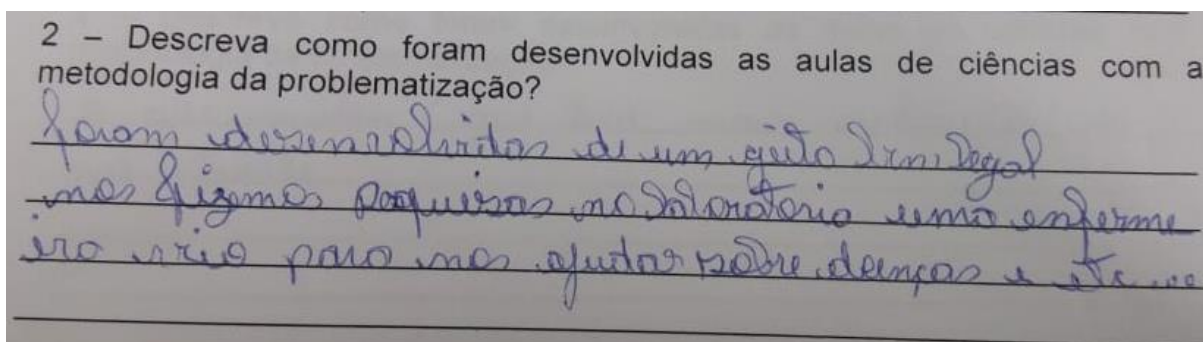 2 – Descreva como foram desenvolvidas as aulas de ciências com a
metodologia da problematização?
foram desenvolvidas de um geito bem legal
nos fizemos pesquisas no laboratorio uma enferme
ira veio para nos ajudar sobre doenças e etc...